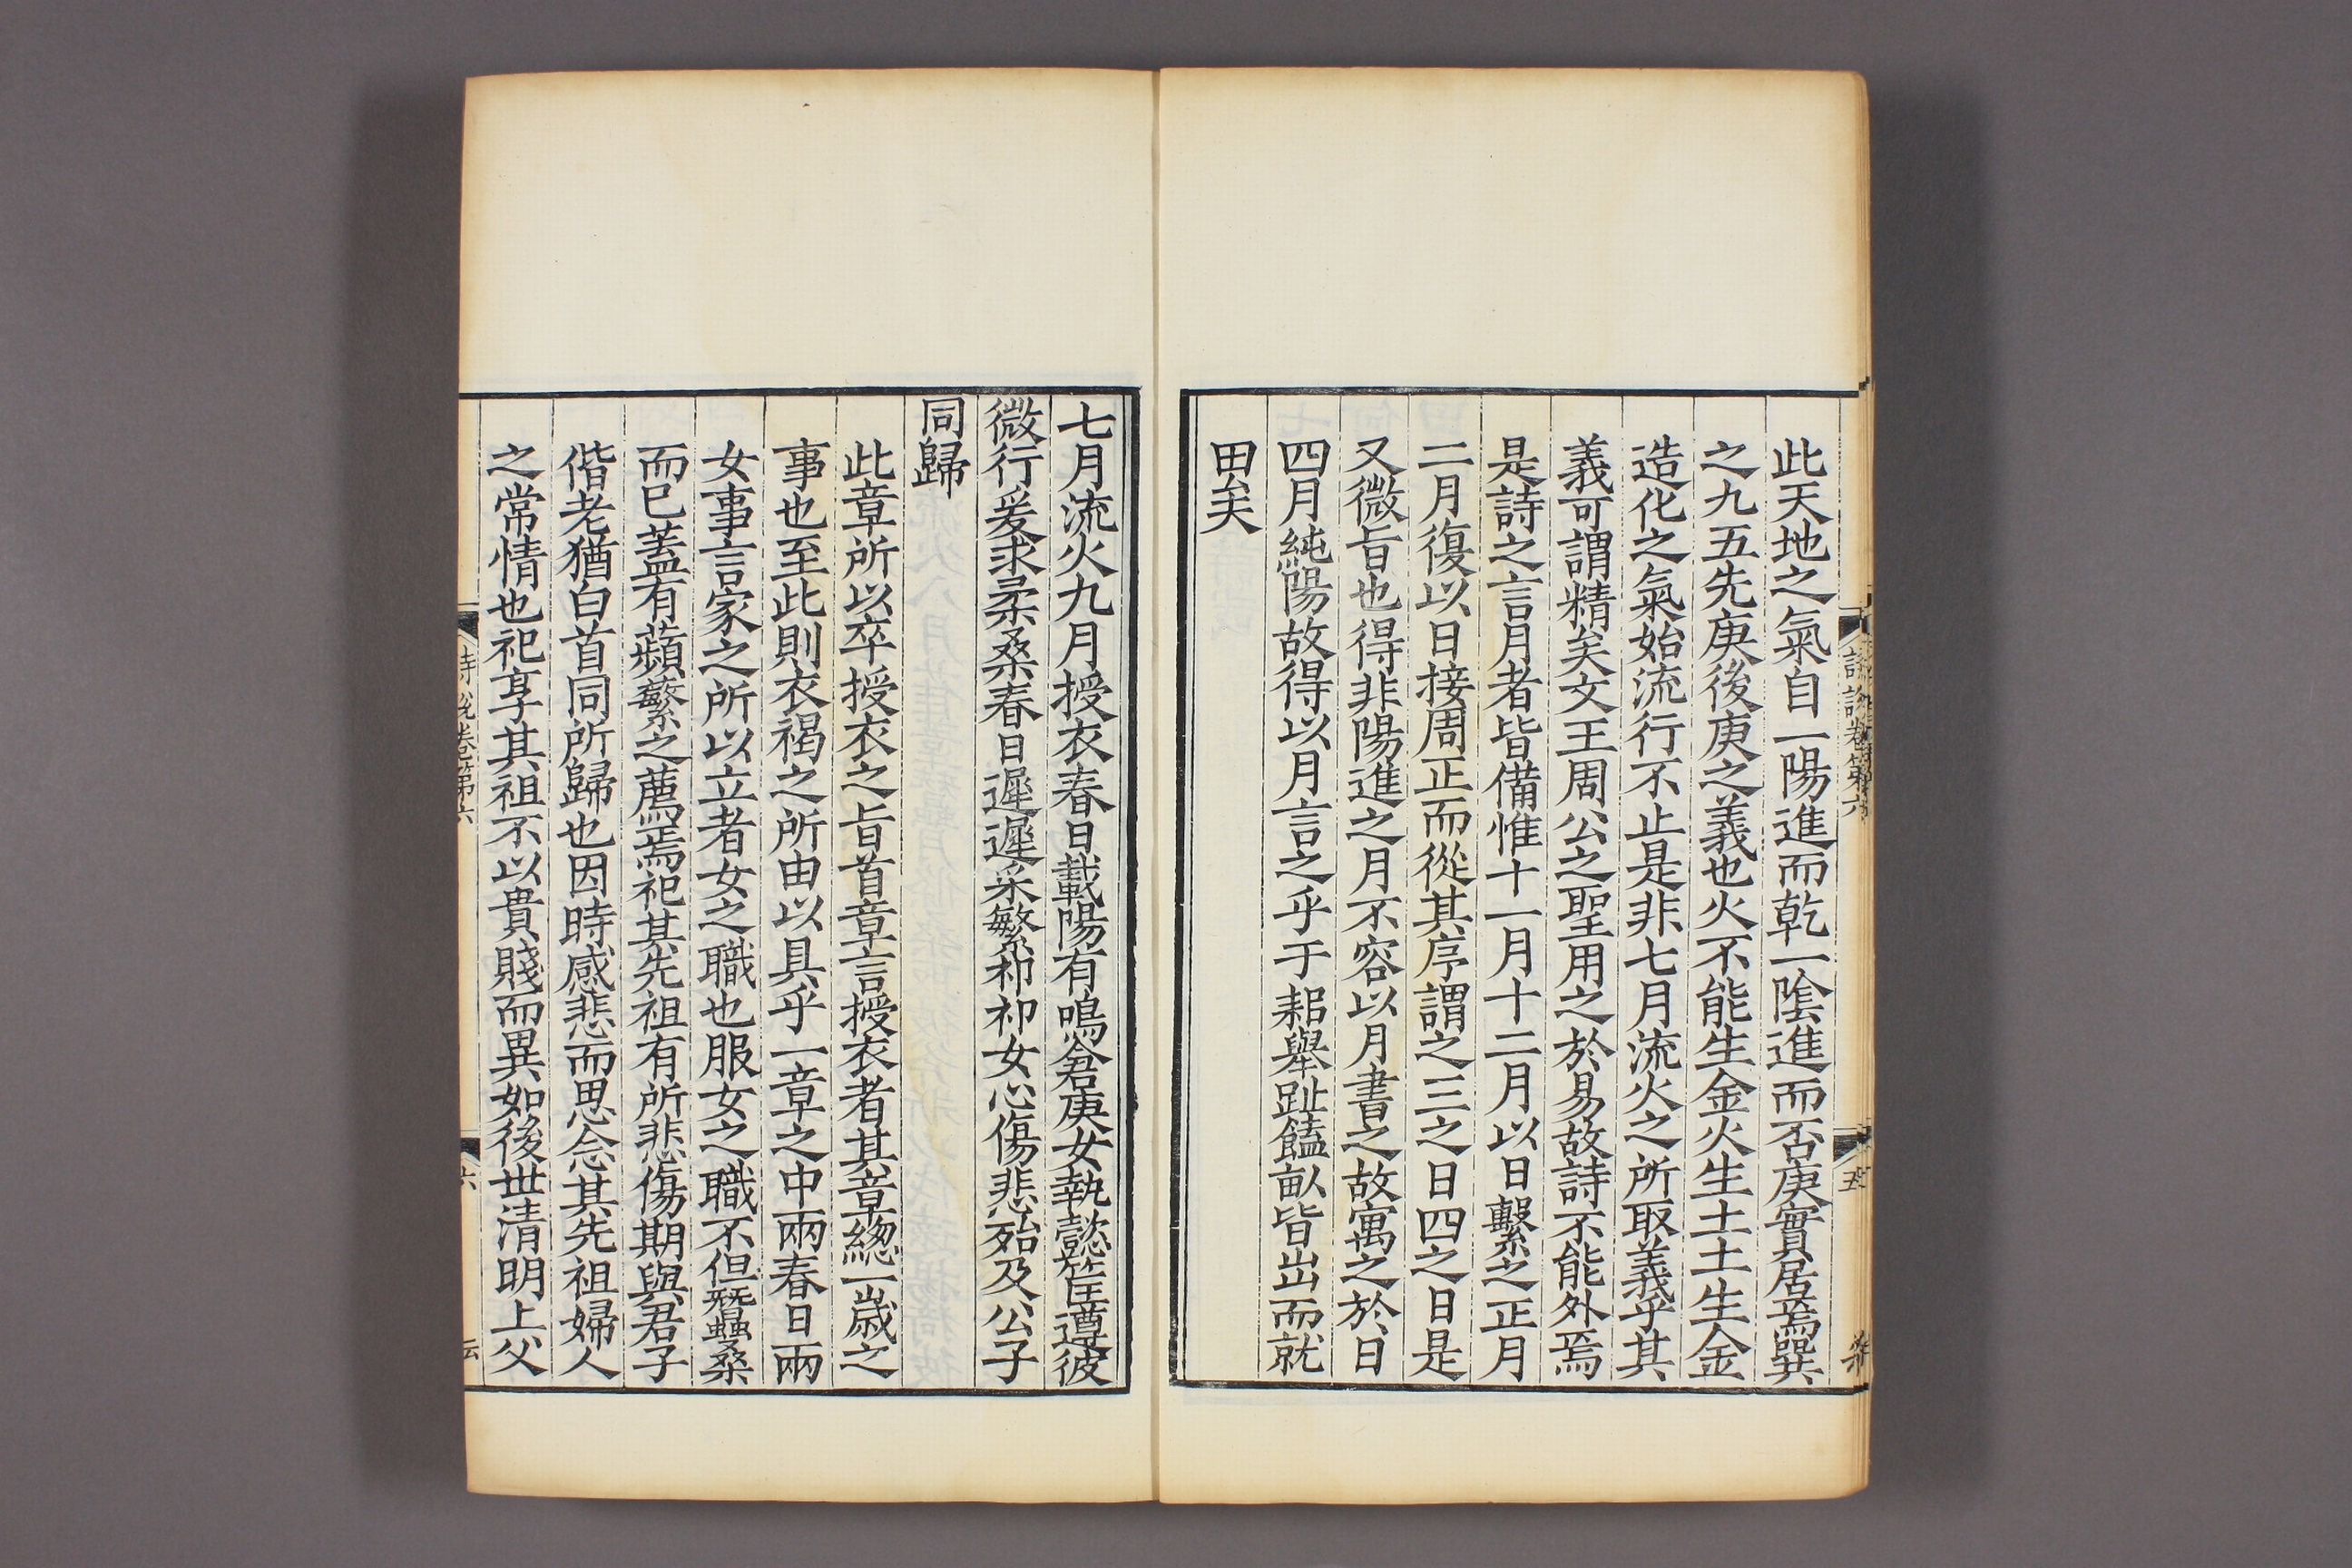 此天地之氣自一陽進而乾一隂進而否庚實居焉巽
之九五先庚後庚之義也火不能生金火生土土生金
造化之氣始流行不止是非七月流火之所取義乎其
義可謂精矣文王周公之聖用之於易故詩不能外焉
是詩之言月者皆備惟十一月十二月以日繫之正月
二月復以日接周正而從其序謂之三之日四之日是
又微旨也得非陽進之月不容以月書之故寓之於日
四月純陽故得以月言之乎于耜舉趾饁畝皆出而就
田矣
詩說卷第六
五
七月流火九月授衣春日載陽有鳴倉庚女執懿筐遵彼
微行爰求柔桑春日遲遲采蘩祁祁女心傷悲殆及公子
同歸
此章所以卒授衣之旨首章言授衣者其章緫一歳之
事也至此則衣褐之所由以具乎一章之中兩春日兩
女事言家之所以立者女之職也服女之職不但蠶桑
而已蓋有蘋蘩之薦焉祀其先祖有所悲傷期與君子
偕老猶白首同所歸也因時感悲而思念其先祖婦人
之常情也祀享其祖不以貴賤而異如後世清明上父
詩說卷第六
六